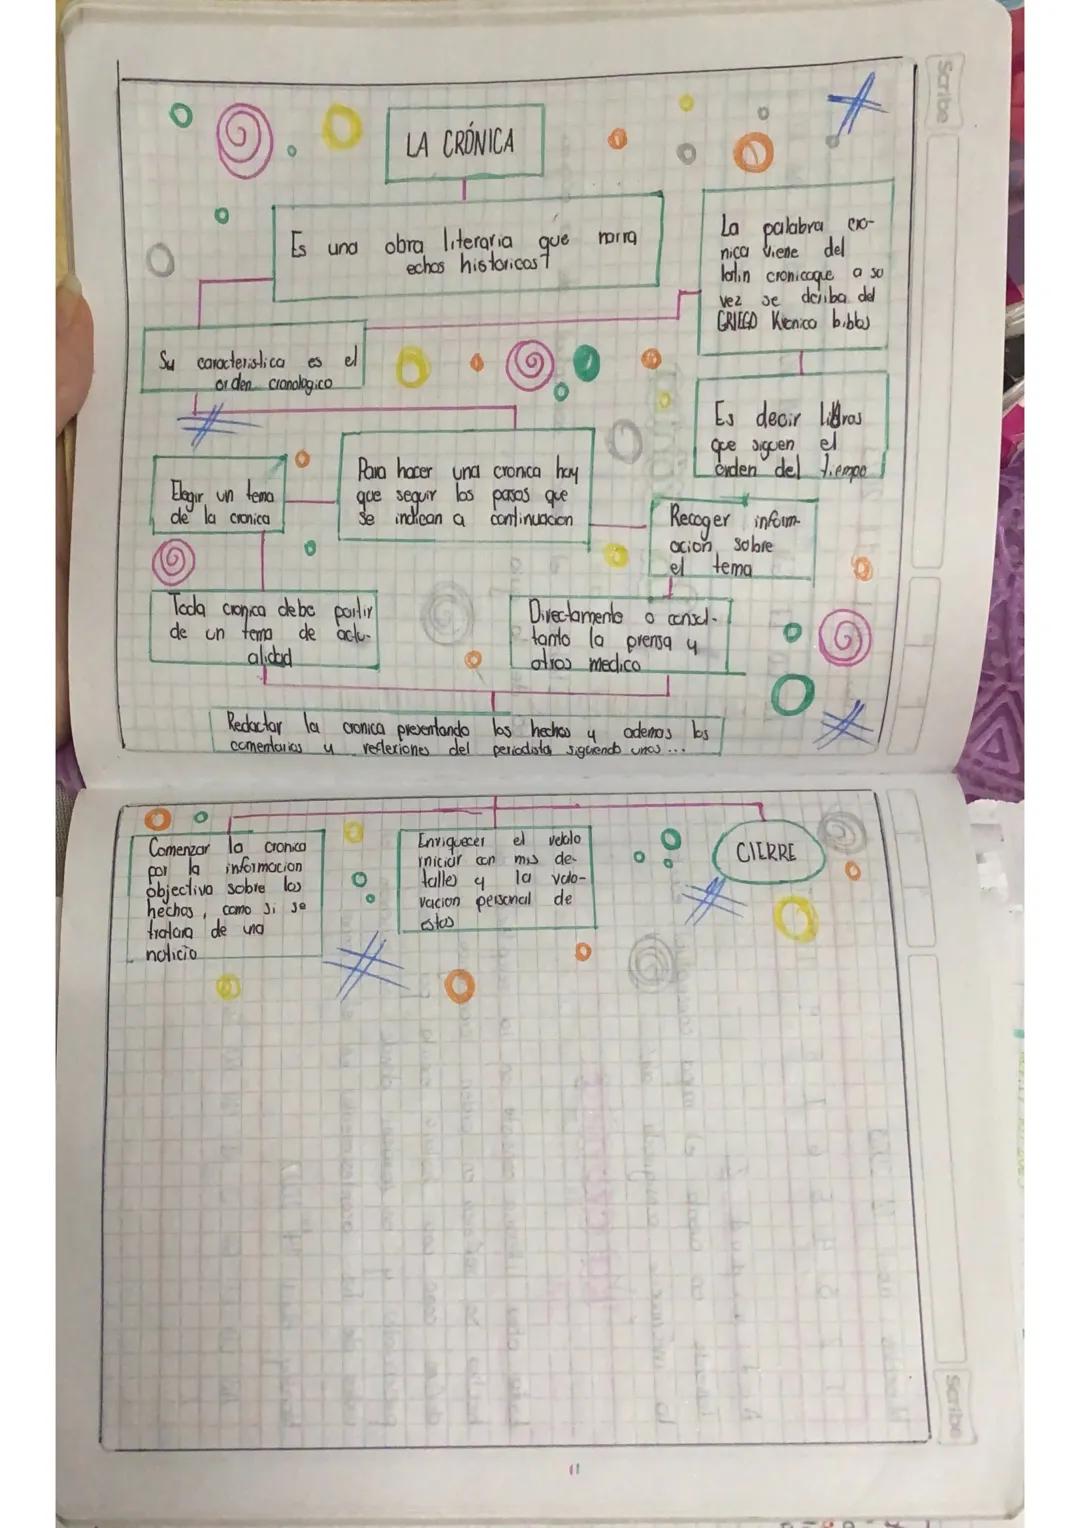 Scribe
LA CRÓNICA
Es una obra literaria que narra
echos historicos
La palabra cro-
nica viene del
latin cronicaque a su
vez se deriba del
GRIEGO Kronico biblos
Su caracteristica es el
orden cronologico
Es decir libros
que siguen el
orden del tiempo
Elegir un tema
de la cronica
Para hacer una cronica hay
que seguir los pasos que
se indican a continuacion
Recoger inform-
acion sobre
el tema
Toda cronica debe partir
de un tema de actu-
alidad
Directamente o consul-
tanto la prensa y
otros medico
Redactar la cronica presentando los hechos y ademas los
comentarios y reflexiones del periodista siguiendo unos ...
Comenzar la cronica
por la informacion
objectiva sobre los
hechos, como si se
tratara de una
noticio
Enriquecer el
iniciar con mis de-
talles y la valo-
racion personal de
estos
CIERRE
Scribe